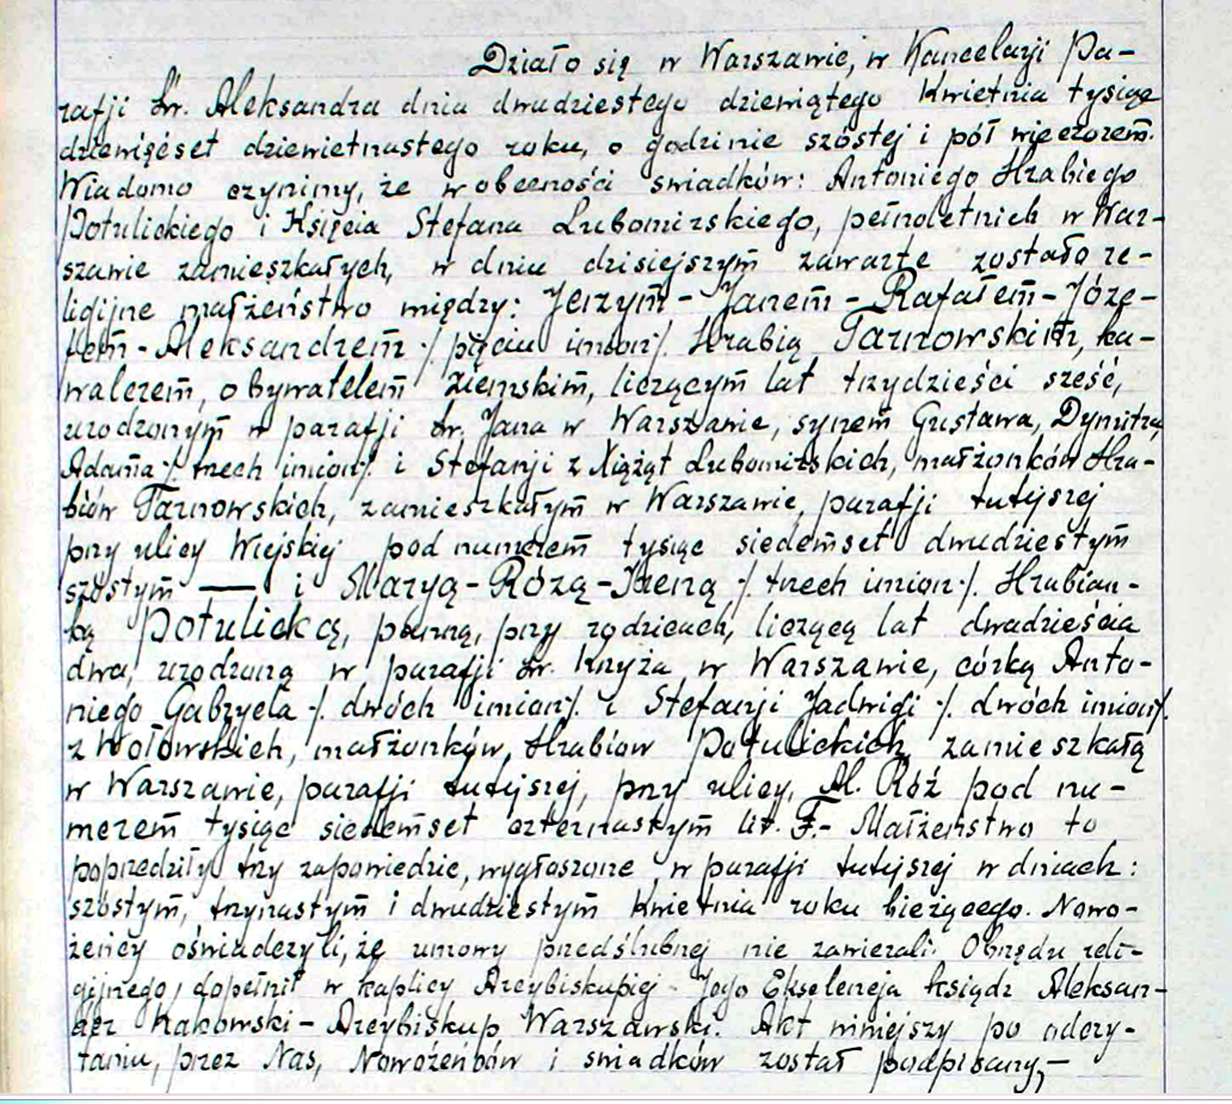 Działo się w Warszawie, w Kancelarji Pa-
rafji św. Aleksandra dnia dwudziestego dziewiątego Kwietnia tysiąc
dziewięćset dziewietnastego roku, o godzinie szóstej i pół wieczorem.
Wiadomo czynimy, że w obecności świadków: Antoniego Hrabiego
Potulickiego i Księcia Stefana Lubomirskiego, pełnoletnich w War-
szawie zamieszkałych, w dniu dzisiejszym zawarte zostało re-
ligijne małżeństwo między: Jerzym-Janem-Rafałem-Józe-
fem-Aleksandrem ·/. pięciu imion/. Hrabią Tarnowskim, ka-
walerem, obywatelem ziemskim, liczącym lat trzydzieści sześć,
urodzonym w parafji św. Jana w Warszawie, synem Gustawa, Dymitra,
Adama ·/. trzech imion/. i Stefanji z Xiążąt Lubomirskich, małżonków Hra-
biów Tarnowskich, zamieszkałym w Warszawie, parafji tutejszej
przy ulicy Wiejskiej pod numerem tysiąc siedemset dwudziestym
szóstym —— i Maryą-Różą-Ireną ·/. trzech imion ·/. Hrabian-
ką Potulicką, panną, przy rodzicach, liczącą lat dwadzieścia
dwa, urodzoną w parafji św. Krzyża w Warszawie, córką Anto-
niego Gabryela ·/. dwóch imion/. i Stefanji Jadwigi ·/. dwóch imion/.
z Wołowskich, małżonków, Hrabiow Potulickich, zamieszkałą
w Warszawie, parafji tutejszej, przy ulicy, Al. Róż pod nu-
merem tysiąc siedemset czternastym lit. F.- Małżeństwo to
poprzedziły trzy zapowiedzie, wygłaszone w parafji tutejszej w dniach:
szóstym, trzynastym i dwudziestym Kwietnia roku bieżącego. Nowo-
żeńcy oświadczyli, że umowy przedślubnej nie zawierali. Obrzędu reli-
gijnego, dopełnił w kaplicy Arcybiskupiej - Jego Ekselencja ksiądz Aleksan-
der Kakowski - Arcybiskup Warszawski. Akt niniejszy po odczy-
taniu, przez Nas, Nowożeńców i świadków został podpisany,-